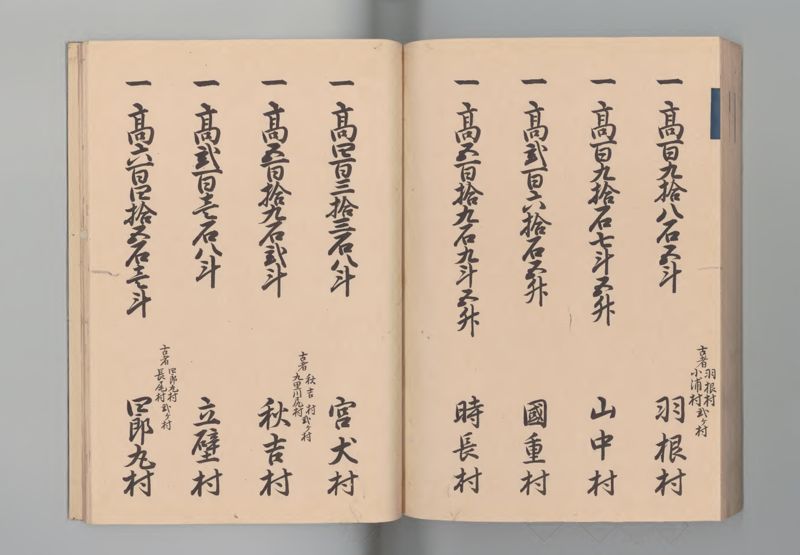 古者 羽根村 小浦村 弐ヶ村
一 高百九拾八石五斗 羽根村
一 高百九拾石七斗五升 山中村
一 高弐百六拾石五升 國重村
一 高五百拾九石九斗五升 時長村
一 高四百三拾三石八斗 宮犬村
古者 秋吉村 九里川尻村 弐ヶ村
一 高五百拾九石弐斗 秋吉村
一 高弐百壱石八斗 立壁村
古者 四郎丸村 長尾村 弐ヶ村
一 高六百四拾五石壱斗 四郎丸村